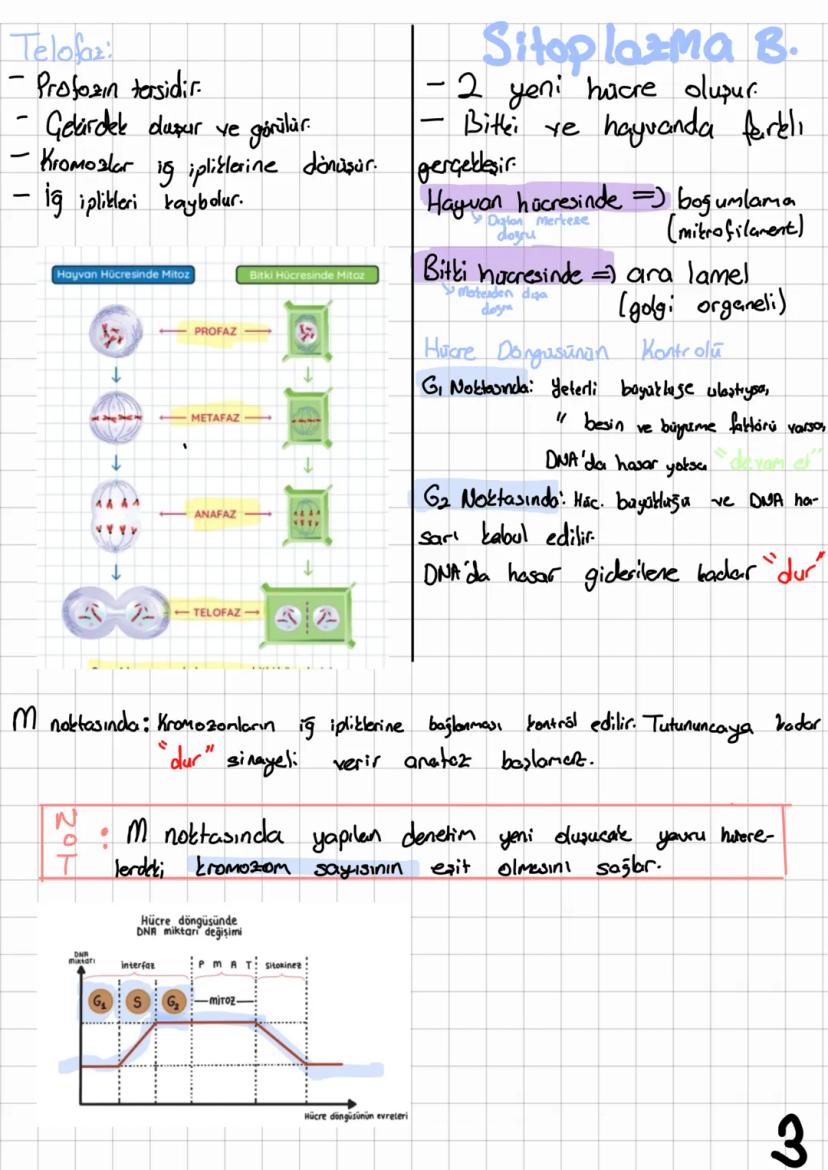 Telofaz:
- Profazın tersidir.
- Çekirdek oluşur ve görülür.
- Kromozlar iğ ipliklerine dönüşür.
- İğ iplikleri kaybolur.
Hayvan Hücresinde Mitoz
Bitki Hücresinde Mitoz
PROFAZ
METAFAZ
ANAFAZ
TELOFAZ
Sitoplazma B.
- 2 yeni hücre oluşur.
- Bitki ve hayvanda farklı
gerçekleşir.
Hayvan hücresinde => boğumlama
Dıştan merkeze
doğru
(mikrofilament)
Bitki hücresinde => ara lamel
Merkezden dışa
doğru
(golgi organeli)
Hücre Döngüsünün Kontrolü
G₁ Noktasında: Yeterli büyüklüğe ulaştıysa,
" besin ve büyüme faktörü varsa,
DNA'da hasar yoksa "devam et"
G₂ Noktasında: Hüc. büyüklüğü ve DNA ha-
sarı kabul edilir.
DNA'da hasar giderilene kadar "dur"
M noktasında: Kromozomların iğ ipliklerine bağlanması kontrol edilir. Tutununcaya kadar
"dur" sinayeli verir anafaz başlamaz.
NOT: M noktasında yapılan denetim yeni oluşucak yavru hücre-
lerdeki kromozom sayısının eşit olmesını sağlar.
Hücre döngüsünde
DNA miktarı değişimi
DNA
miktarı
interfaz
P M A T
Sitokinez
G₁ S G₂
MİTOZ
Hücre döngüsünün evreleri
3